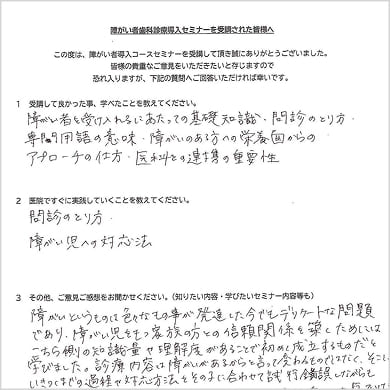 障がい者歯科診療導入セミナーを受講された皆様へ
この度は、障がい者導入コースセミナーを受講して頂き誠にありがとうございました。
皆様の貴重なご意見をいただきたいと存じますので
恐れ入りますが、下記の質問へご回答いただければ幸いです。
1 受講して良かった事、学べたことを教えてください。
障がい者を受け入れるにあたっての基礎知識、問診のとり方、
専門用語の意味、障がいのある方への栄養面からの
アプローチの仕方、医科との連携の重要性
2 医院ですぐに実践していくことを教えてください。
問診のとり方
障がい児への対応法
3 その他、ご意見ご感想をお聞かせください。(知りたい内容・学びたいセミナー内容等も)
障がいというものは色々なもの事が発進した今でもデリケートな問題
であり、障がい児をもつ家族の方との信頼関係を築くためには
こちら側の知識量や理解度があることで初めて成立するものだと
学びました。診療内容は障がいがあるからと言って変わるものではなく、そこに
いきつくまでの過程や対応方法をその子に合わせて試行錯誤しながら